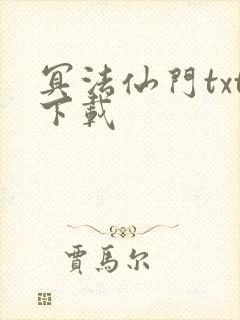 冥法仙門txt
下載
賈馬尔